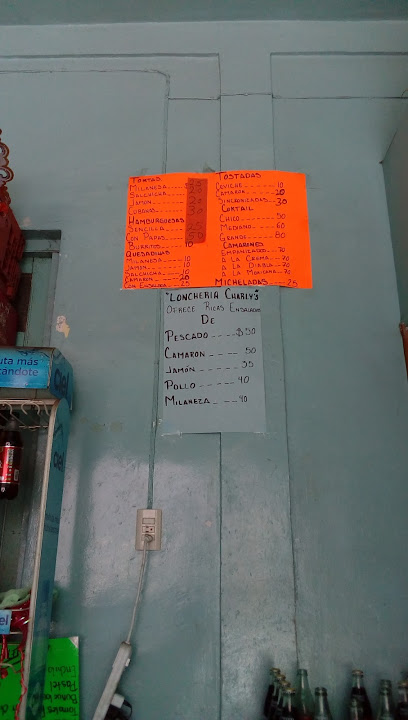 TORTAS
MILANESA
SALCHICHA
JAMON
CUBANA
HAMBURGUESAS
SENCILLA
CON PAPAS
BURRITOS 10
QUESADILLAS
MILANESA 10
JAMON 10
SALCHICHA 10
CAMARON 20
CON ENSALADA 25
TOSTADAS
CEVICHE 10
CAMARON 20
SINCRONIZADAS 30
COKTAIL
CHICO 50
MEDIANO 60
GRANDE 80
CAMARONES
EMPANIZADOS 70
A LA CREMA 70
A LA DIABLA 70
A LA MORIANA 70
MICHELADAS 25
"LONCHERIA CHARLY'S"
OFRECE RICAS ENSALADAS
DE
PESCADO $50
CAMARON 50
JAMÓN 35
POLLO 40
MILANEZA 40
uta más
tándote
Ciel